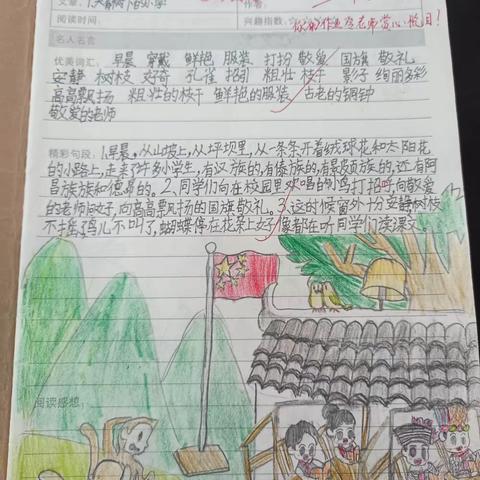 文章：1.大青树下的小学
作者：
阅读时间：
兴趣指数：
你的作业令老师赏心悦目！
名人名言
优美词汇：早晨 穿戴 鲜艳 服装 打扮 敬爱 国旗 敬礼
安静 树枝 好奇 孔雀 招引 粗壮 枝干 影子 绚丽多彩
高高飘扬 粗壮的枝干 鲜艳的服装 古老的铜钟
敬爱的老师
精彩句段：1.早晨，从山坡上，从坪坝里，从一条条开着绒球花和太阳花
的小路上，走来了许多小学生，有汉族的，有傣族的，有景颇族的，还有阿
昌族族和德昂的。2、同学们向在校园里欢唱的小鸟打招呼，向敬爱
的老师问好，向高高飘扬的国旗敬礼。3、这时候窗外十分安静，树枝
不摇了，鸟儿不叫了，蝴蝶停在花朵上，好像都在听同学们读课文。
阅读感想：